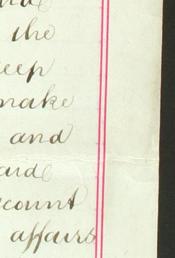 the
eep
make
and
aid
count
affairs